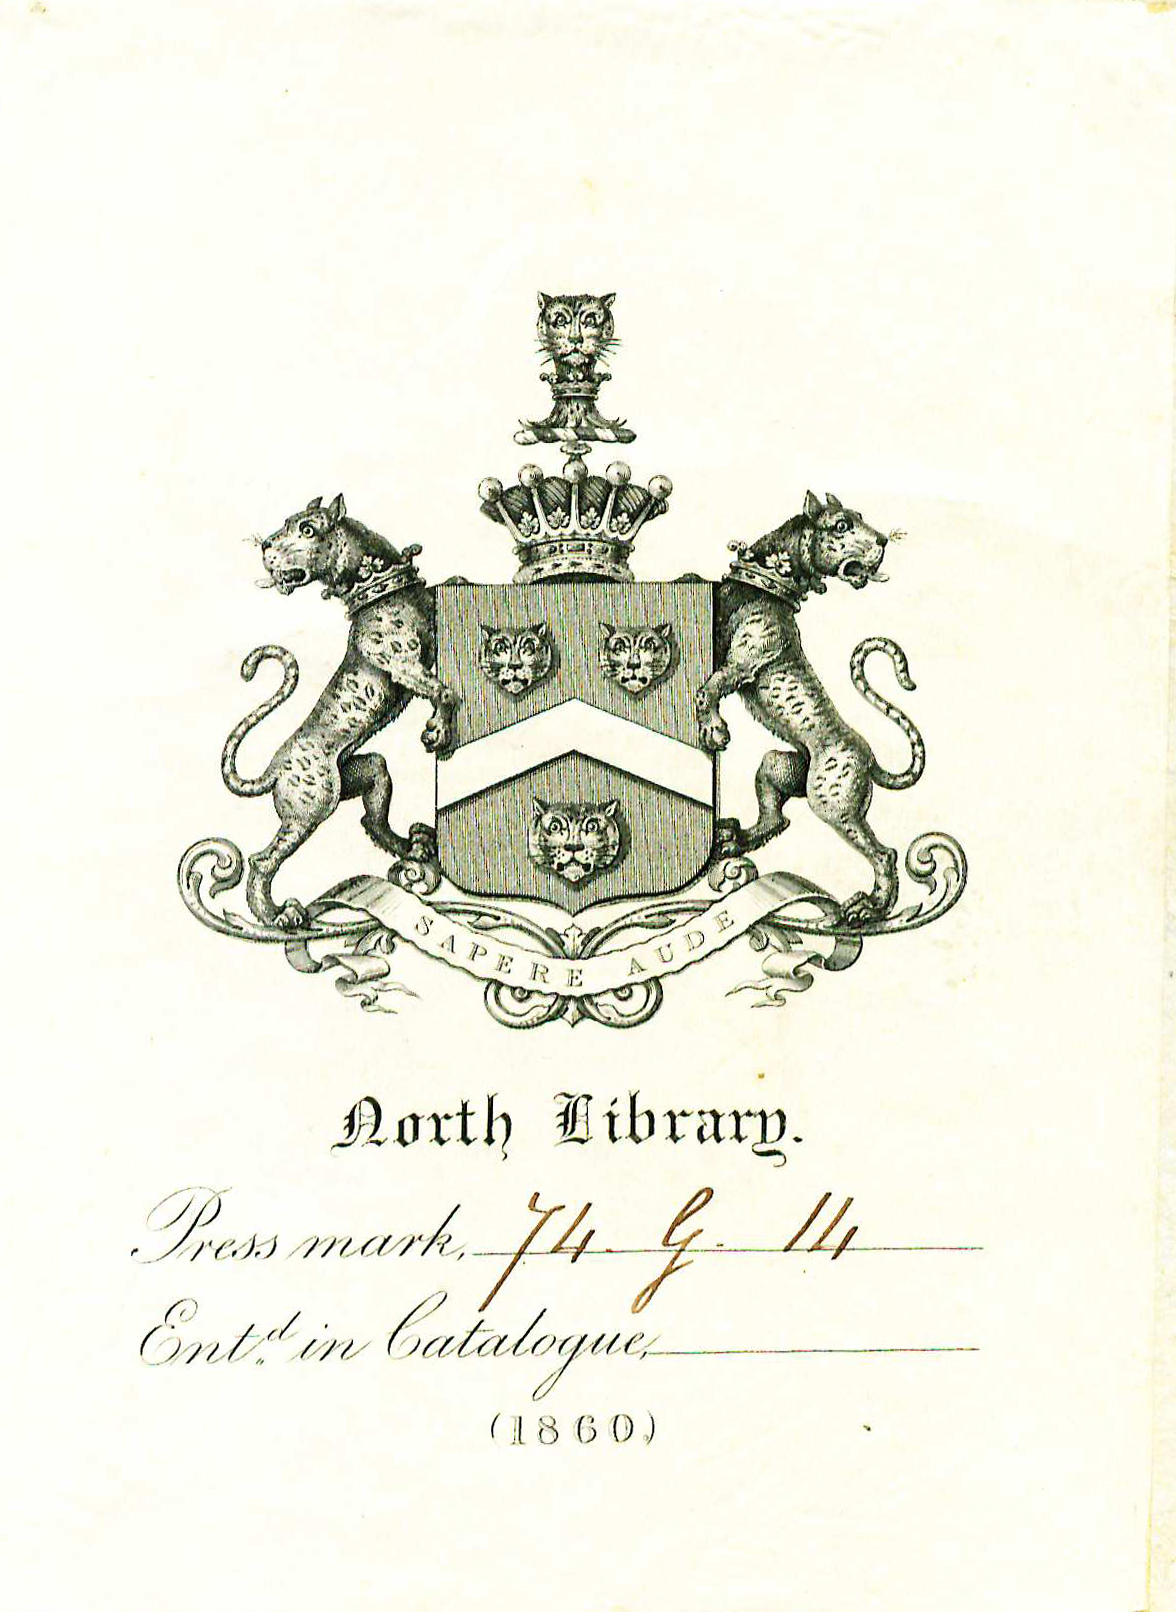 SAPERE AUDE
North Library.
Press mark, 74. G. 14
Entd. in Catalogue,
(1860)